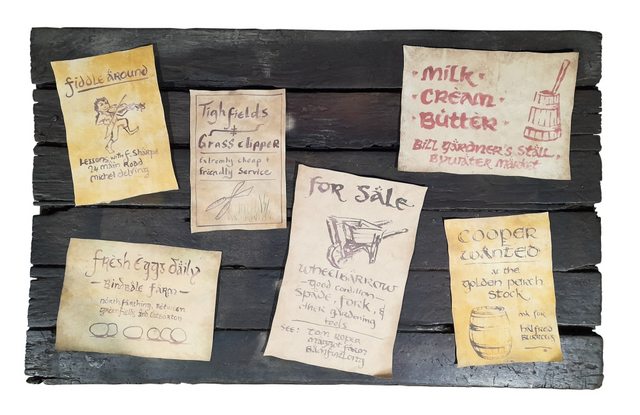 fiddle around
Lessons with F. Sharpe
24 Main Road
Michel delving
Tighfields
+
Grass clipper
Extremely cheap +
friendly Service
Milk
Cream
Butter
Bill Gardner's Stall
Bywater Market
Fresh Eggs daily
Farm
north farthing, Between
greenfields and
For Sale
Wheelbarrow
good condition
Spade, fork, &
other gardening
tools
See: Tom
Cooper
Wanted
at the
golden perch
Stock
ask for